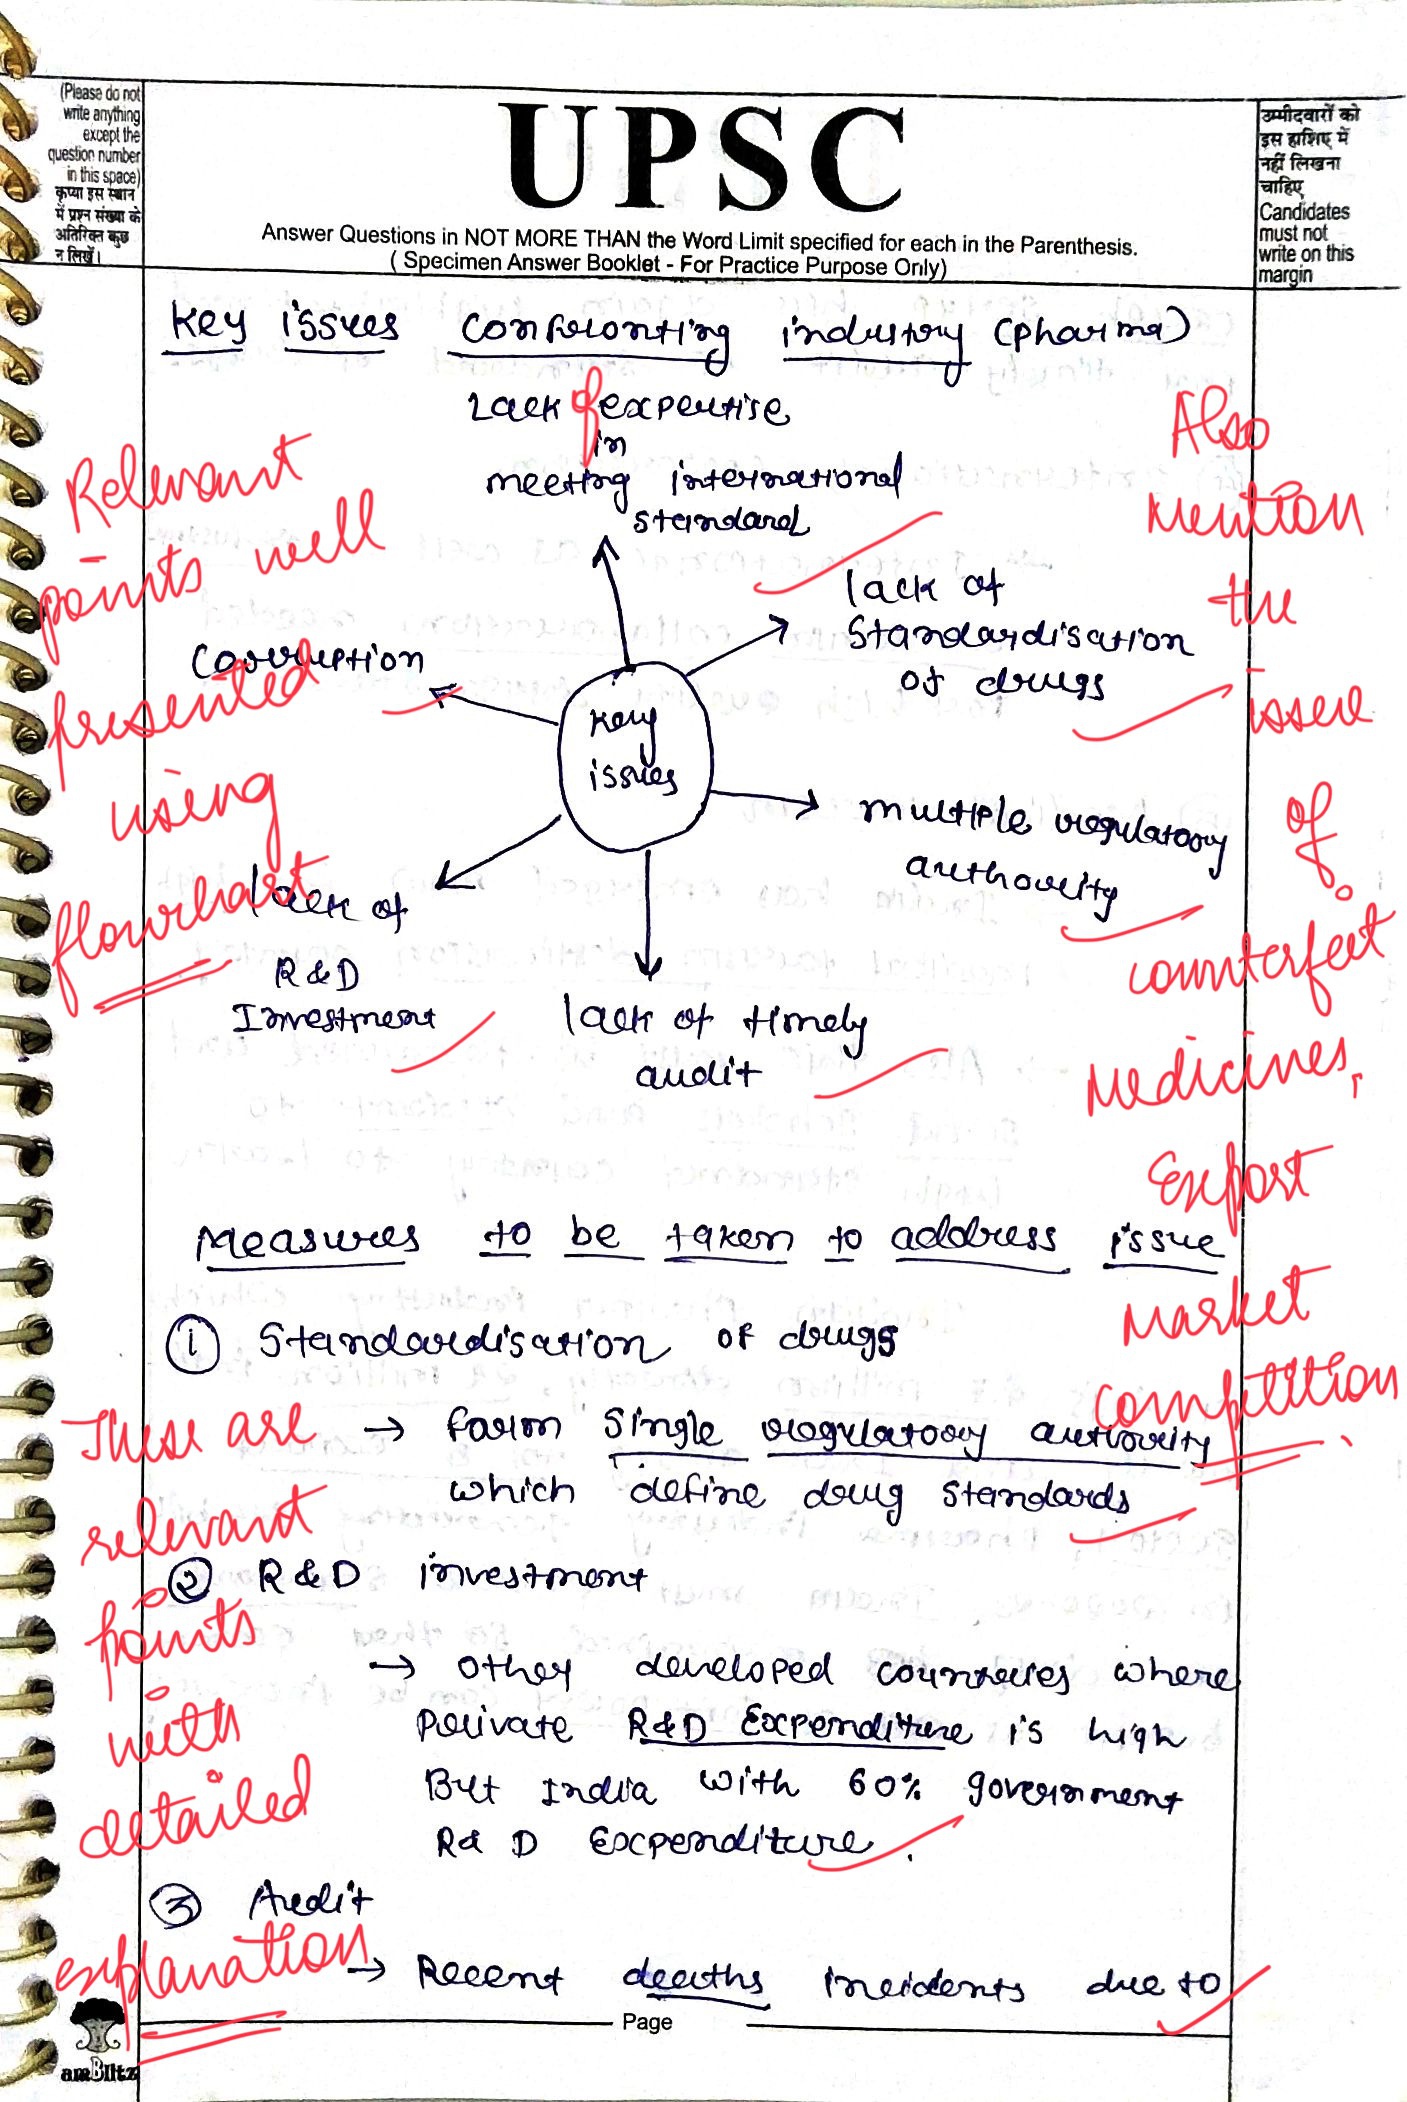 (Please do not
write anything
except the
question number
in this space)
कृप्या इस स्थान
में प्रश्न संख्या के
अतिरिक्त कुछ
न लिखें।
UPSC
Answer Questions in NOT MORE THAN the Word Limit specified for each in the Parenthesis.
( Specimen Answer Booklet - For Practice Purpose Only)
उम्मीदवारों को
इस हाशिए में
नहीं लिखना
चाहिए
Candidates
must not
write on this
margin
Key issues confronting industry (pharma)
Lack of expertise
in
meeting international
standard
lack of
standardisation
of drugs
Corruption
Key
issues
multiple regulatory
authority
lack of
R&D
Investment
lack of timely
audit
Relevant
points well
presented
using
flowchart
Also
mention
the
issue
of
counterfeit
medicines,
Export
market
competition.
Measures to be taken to address issue
① Standardisation of drugs
→ form single regulatory authority
which define drug standards
② R&D investment
→ Other developed countries where
private R&D Expenditure is high
But India with 60% government
R& D Expenditure.
③ Audit
→ Recent deaths incidents due to
These are
relevant
points
with
detailed
explanation
Page
amBlitz